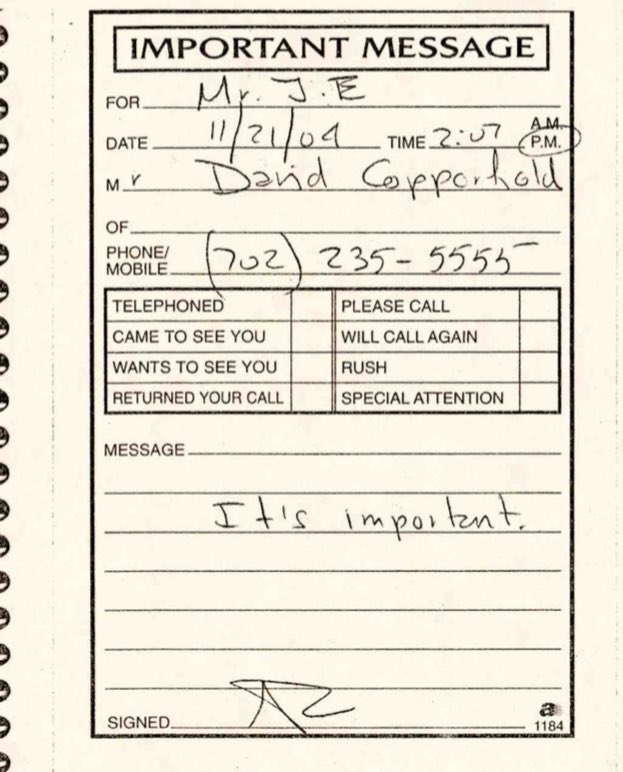 IMPORTANT MESSAGE
FOR Mr. J.E
DATE 11/21/04 TIME 2:07 A.M.
P.M.
Mr David Copporhold
OF
PHONE/
MOBILE (702) 235-5555
TELEPHONED PLEASE CALL
CAME TO SEE YOU WILL CALL AGAIN
WANTS TO SEE YOU RUSH
RETURNED YOUR CALL SPECIAL ATTENTION
MESSAGE
It's important.
SIGNED
1184